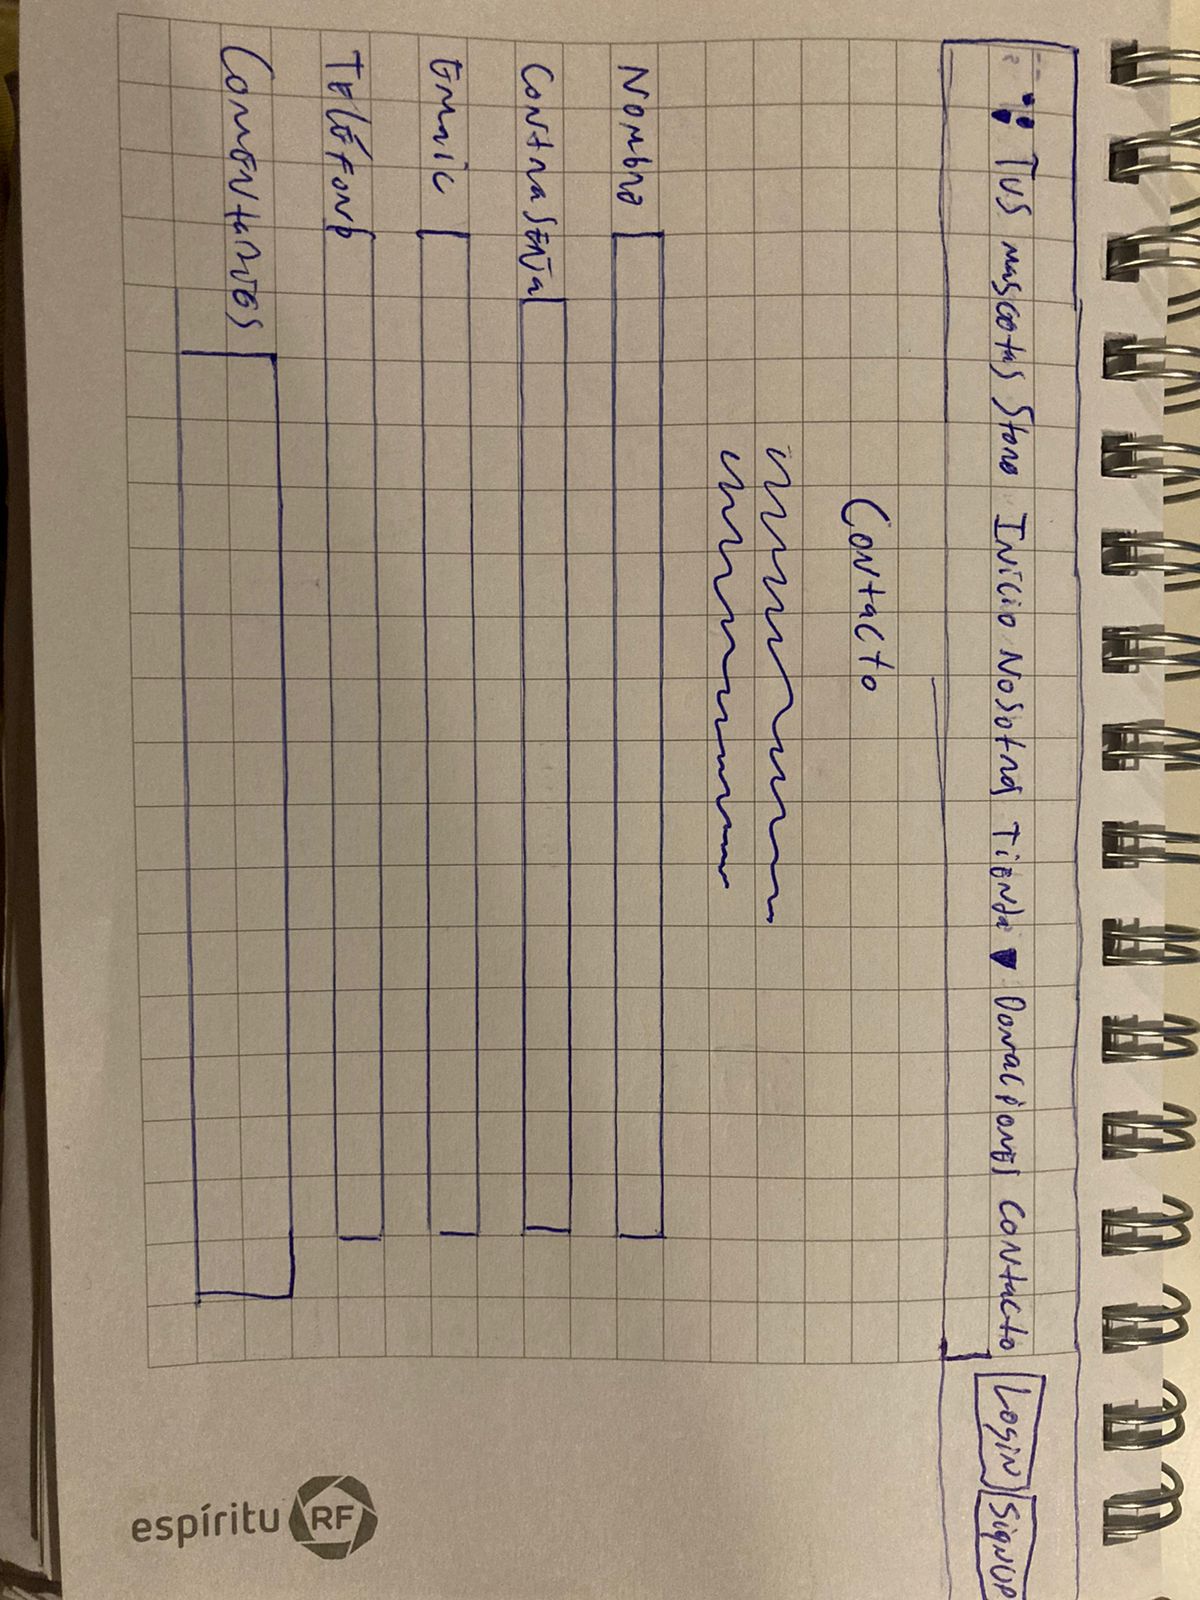 Tus mascotas Store Inicio Nosotros Tienda Donaciones Contacto Login Signup
Contacto
Nombre
Contraseña
Email
Teléfono
Comentarios
espíritu RF